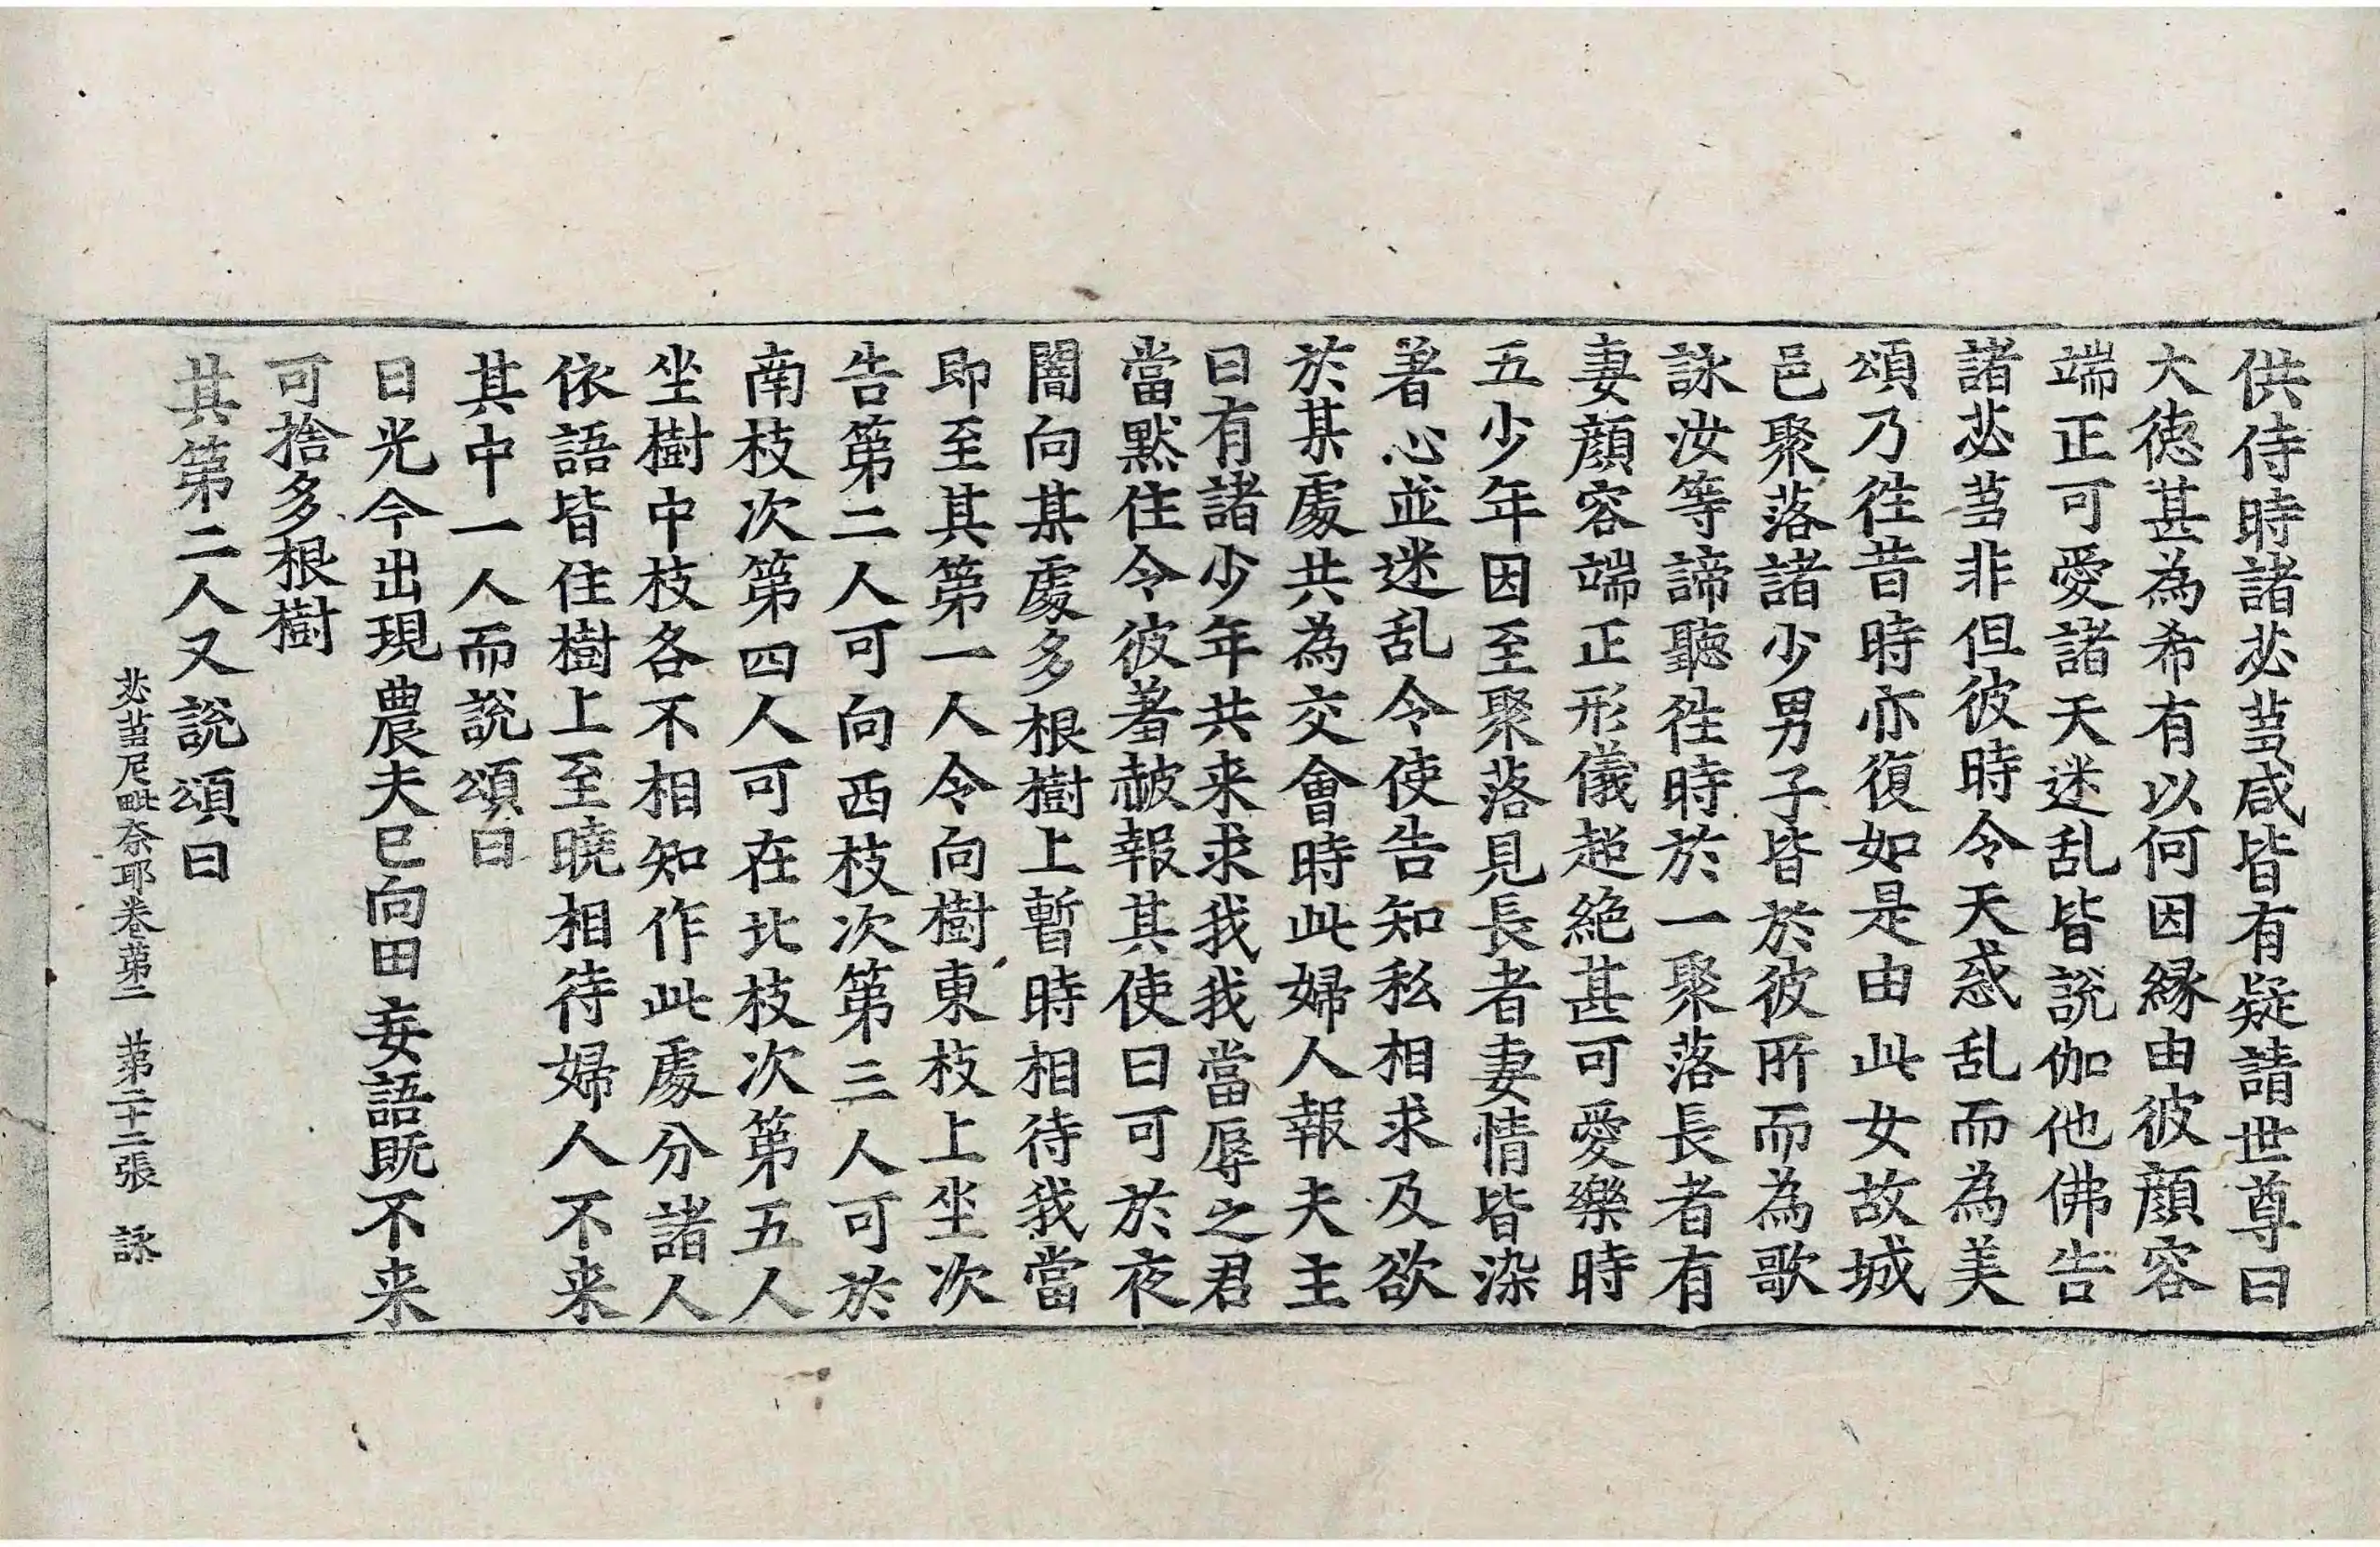 供侍時諸苾芻咸皆有疑請世尊曰
大徳甚為希有以何因縁由彼顔容
端正可愛諸天迷乱皆說伽他佛告
諸苾芻非但彼時令天惑乱而為美
頌乃徃昔時亦復如是由此女故城
邑聚落諸少男子皆於彼所而為歌
詠汝等諦聽徃時於一聚落長者有
妻顔容端正形儀超絶甚可愛樂時
五少年因至聚落見長者妻情皆染
著心並迷乱令使告知私相求及欲
於某處共為交會時此婦人報夫主
曰有諸少年共来求我我當辱之君
當黙住令彼羞赧報其使曰可於夜
闇向某處多根樹上暫時相待我當
即至其第一人令向樹東枝上坐次
告第二人可向西枝次第三人可於
南枝次第四人可在北枝次第五人
坐樹中枝各不相知作此處分諸人
依語皆住樹上至曉相待婦人不来
其中一人而說頌曰
日光今出現農夫已向田妄語既不来
可捨多根樹
其第二人又說頌曰
苾芻尼毗奈耶卷第二　第二十二張　詠